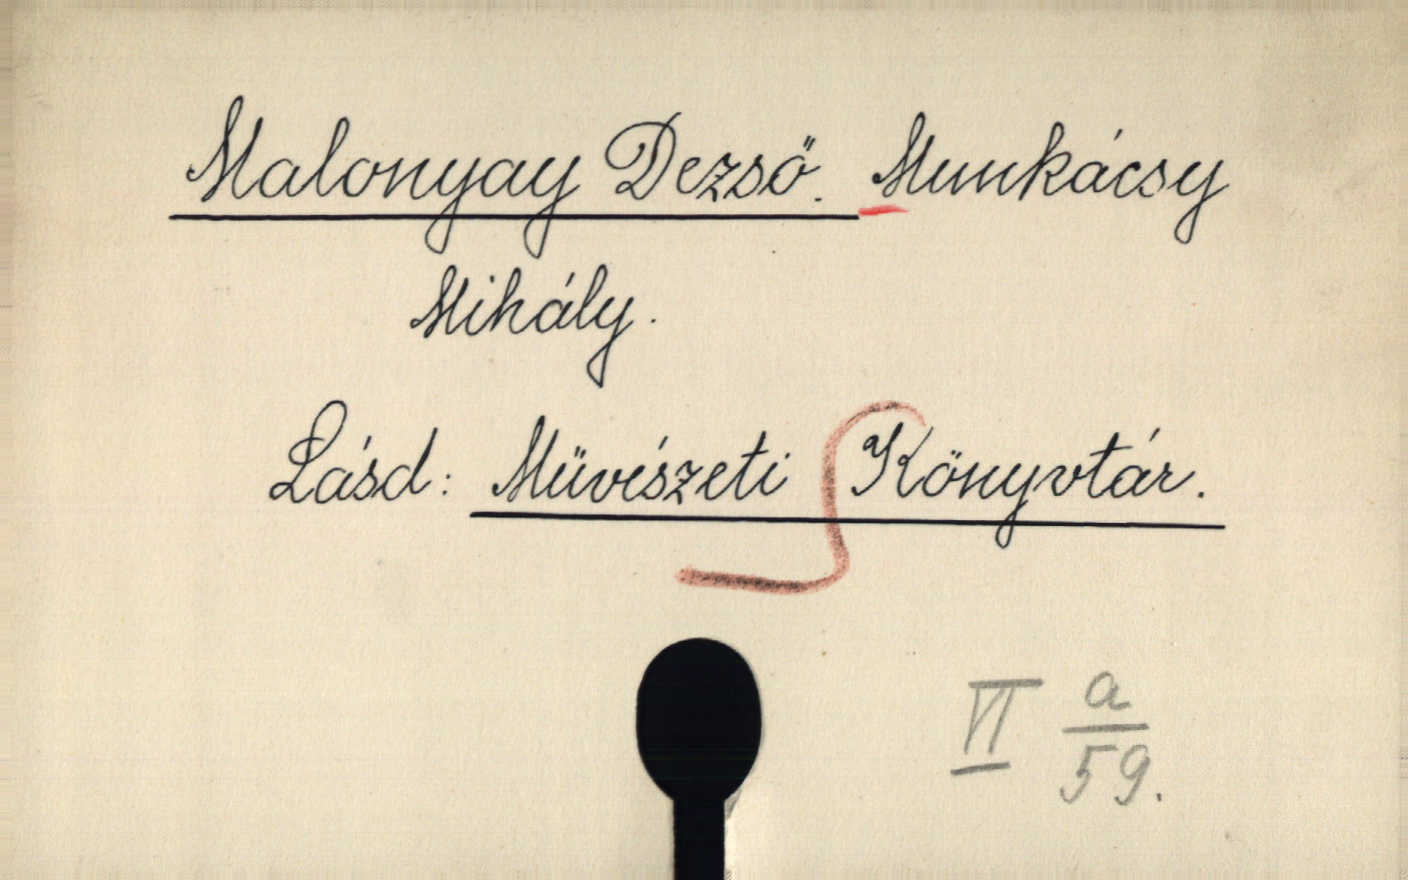 Malonyay Dezső. Munkácsy
Mihály.
Lásd: Müvészeti Könyvtár.
VI a/59.